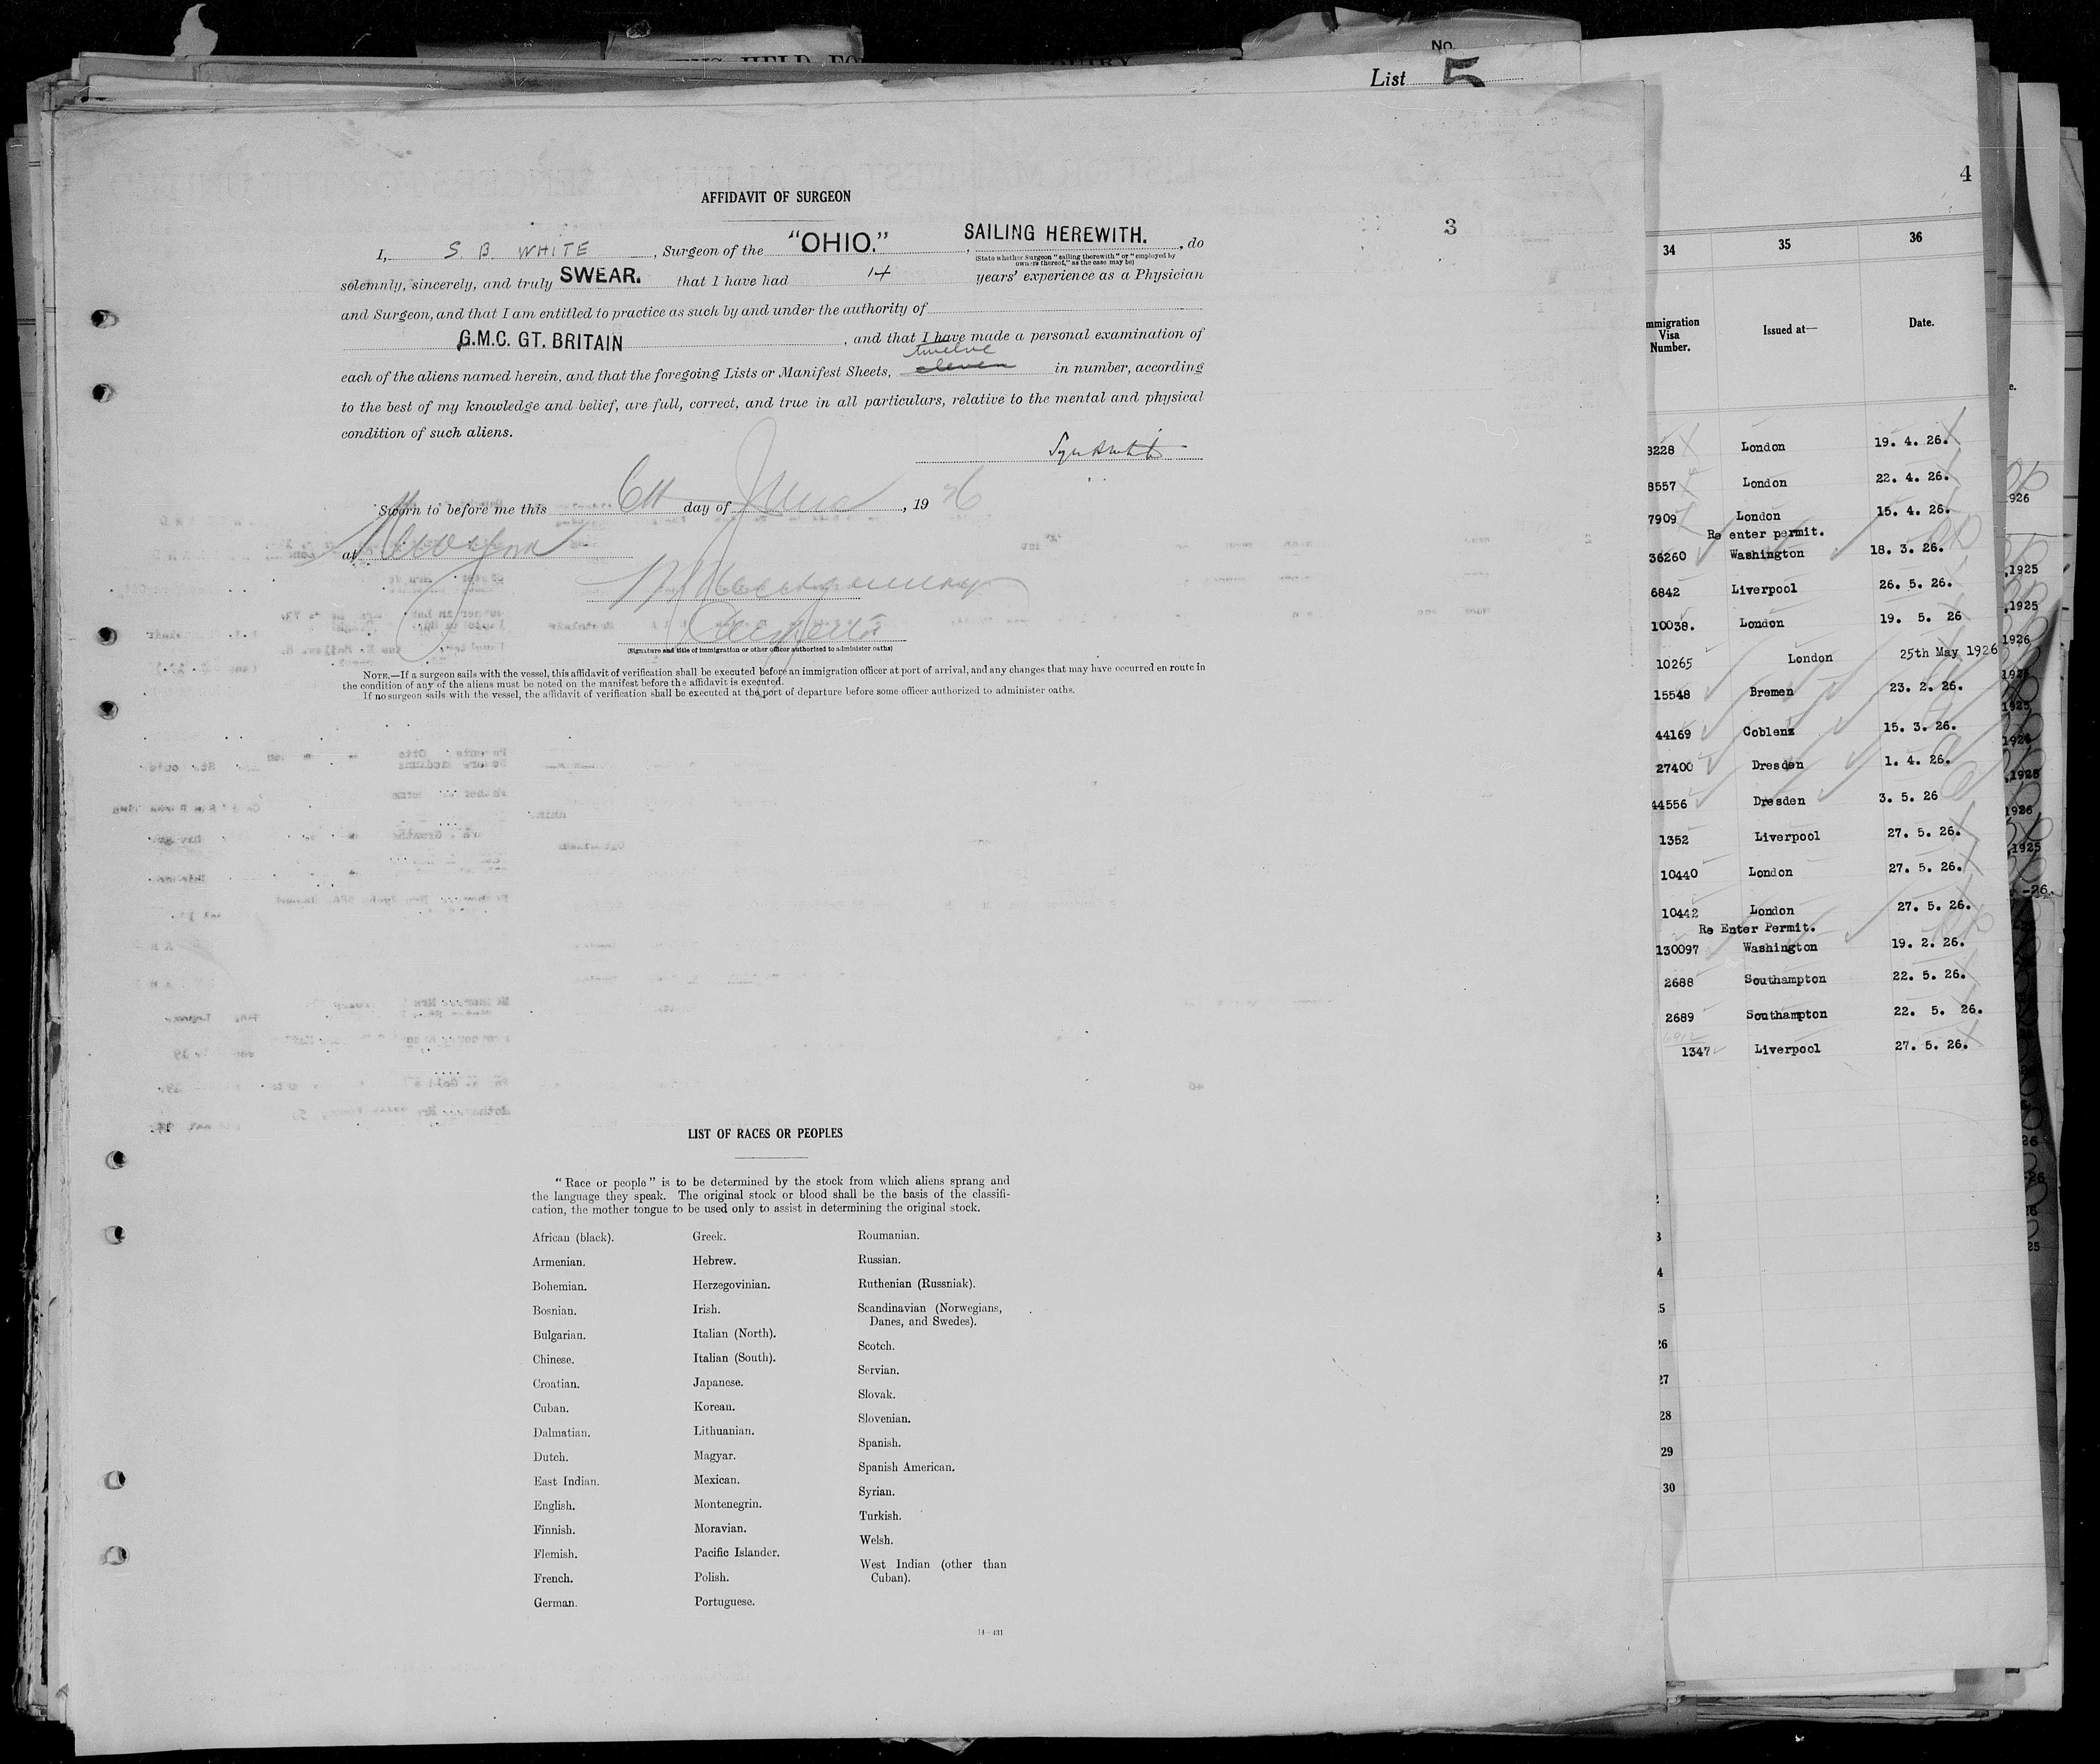 No.
List 5
4
3
AFFIDAVIT OF SURGEON
I, S. B. WHITE, Surgeon of the "OHIO.", SAILING HEREWITH., do
(State whether Surgeon "sailing therewith" or "employed by
owners thereof," as the case may be)
solemnly, sincerely, and truly SWEAR. that I have had 14 years' experience as a Physician
and Surgeon, and that I am entitled to practice as such by and under the authority of
G.M.C. GT. BRITAIN, and that I have made a personal examination of
twelve
each of the aliens named herein, and that the foregoing Lists or Manifest Sheets, eleven in number, according
to the best of my knowledge and belief, are full, correct, and true in all particulars, relative to the mental and physical
condition of such aliens.
Sworn to before me this 6th day of June, 1926
at New York
(Signature and title of immigration or other officer authorized to administer oaths)
NOTE.—If a surgeon sails with the vessel, this affidavit of verification shall be executed before an immigration officer at port of arrival, and any changes that may have occurred en route in
the condition of any of the aliens must be noted on the manifest before the affidavit is executed.
If no surgeon sails with the vessel, the affidavit of verification shall be executed at the port of departure before some officer authorized to administer oaths.
LIST OF RACES OR PEOPLES
"Race or people" is to be determined by the stock from which aliens sprang and
the language they speak. The original stock or blood shall be the basis of the classifi-
cation, the mother tongue to be used only to assist in determining the original stock.
African (black).
Armenian.
Bohemian.
Bosnian.
Bulgarian.
Chinese.
Croatian.
Cuban.
Dalmatian.
Dutch.
East Indian.
English.
Finnish.
Flemish.
French.
German.
Greek.
Hebrew.
Herzegovinian.
Irish.
Italian (North).
Italian (South).
Japanese.
Korean.
Lithuanian.
Magyar.
Mexican.
Montenegrin.
Moravian.
Pacific Islander.
Polish.
Portuguese.
Roumanian.
Russian.
Ruthenian (Russniak).
Scandinavian (Norwegians,
Danes, and Swedes).
Scotch.
Servian.
Slovak.
Slovenian.
Spanish.
Spanish American.
Syrian.
Turkish.
Welsh.
West Indian (other than
Cuban).
14—431
34 35 36
Immigration
Visa
Number.
Issued at—
Date.
8228 London 19. 4. 26.
8557 London 22. 4. 26.
7909 London 15. 4. 26.
Re enter permit.
36260 Washington 18. 3. 26.
6842 Liverpool 26. 5. 26.
10038. London 19. 5. 26
10265 London 25th May 1926
15548 Bremen 23. 2. 26.
44169 Coblenz 15. 3. 26.
27400 Dresden 1. 4. 26.
44556 Dresden 3. 5. 26
1352 Liverpool 27. 5. 26.
10440 London 27. 5. 26.
10442 London 27. 5. 26.
Re Enter Permit.
130097 Washington 19. 2. 26.
2688 Southampton 22. 5. 26.
2689 Southampton 22. 5. 26.
1347 Liverpool 27. 5. 26.
26
27
28
29
30